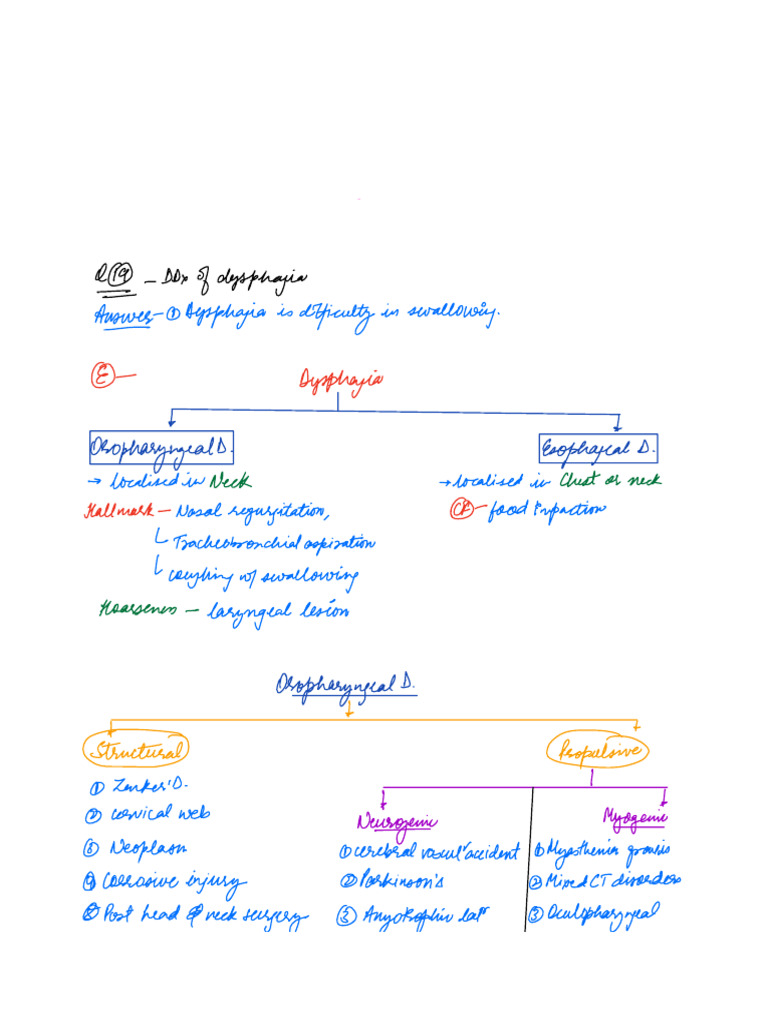 Q(19) - DDx of dysphagia
Answer - ① Dysphagia is difficulty in swallowing.
Ⓔ - Dysphagia
Oropharyngeal D. Esophageal D.
→ localised in Neck → localised in Chest or neck
Hallmark - Nasal regurgitation, - food Impaction
Tracheobronchial aspiration
coughing w/ swallowing
Hoarseness - laryngeal lesion
Oropharyngeal D.
Structural Propulsive
① Zenker's D.
② cervical web Neurogenic Myogenic
③ Neoplasm ① cerebral vascul' accident ① Myasthenia gravis
④ Corrosive injury ② Parkinson's ② Mixed CT disorders
⑤ Post head & neck surgery ③ Amyotrophic lat' ③ Oculopharyngeal